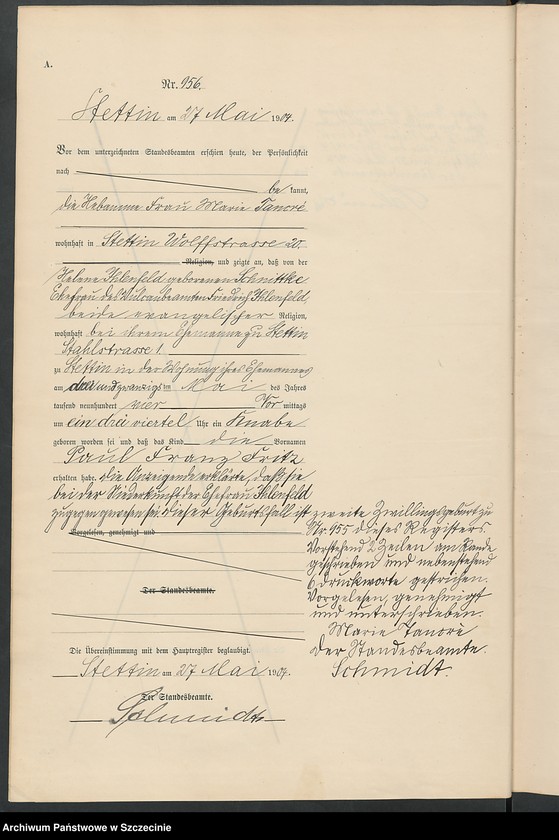 A.
Nr. 956.
Stettin am 27 Mai 1904.
Vor dem unterzeichneten Standesbeamten erschien heute, der Persönlichkeit
nach
be kannt,
die Hebamme Frau Marie Tanore
wohnhaft in Stettin Wolffstrasse 20.
Religion, und zeigte an, daß von der
Helene Ihlenfeld geborenen Schnittke
Ehefrau des Vulcanbeamten Friedrich Ihlenfeld,
beide evangelischer Religion,
wohnhaft bei ihrem Ehemanne zu Stettin
Stahlstrasse 1.
zu Stettin in der Wohnung ihres Ehemannes
am undzwanzigsten Mai des Jahres
tausend neunhundert vier Vor mittags
um ein drei viertel Uhr ein Knabe
geboren worden sei und daß das Kind die Vornamen
Paul Franz Fritz
erhalten habe. Die Anzeigende erklärte, daß sie
bei der Niederkunft der Ehefrau Ihlenfeld
zugegen gewesen sei. Dieser Geburtsfall ist zweite Zwillingsgeburt zu
Nr. 955 dieses Registers.
Vorstehend 2 Zeilen am Rande
geschrieben und nebenstehend
6 Druckworte gestrichen.
Vorgelesen, genehmigt
und unterschrieben.
Marie Tanore
Der Standesbeamte.
Schmidt.
Vorgelesen, genehmigt und
Der Standesbeamte.
Die Übereinstimmung mit dem Hauptregister beglaubigt.
Stettin am 27 Mai 1904.
Der Standesbeamte.
Schmidt
Archiwum Państwowe w Szczecinie